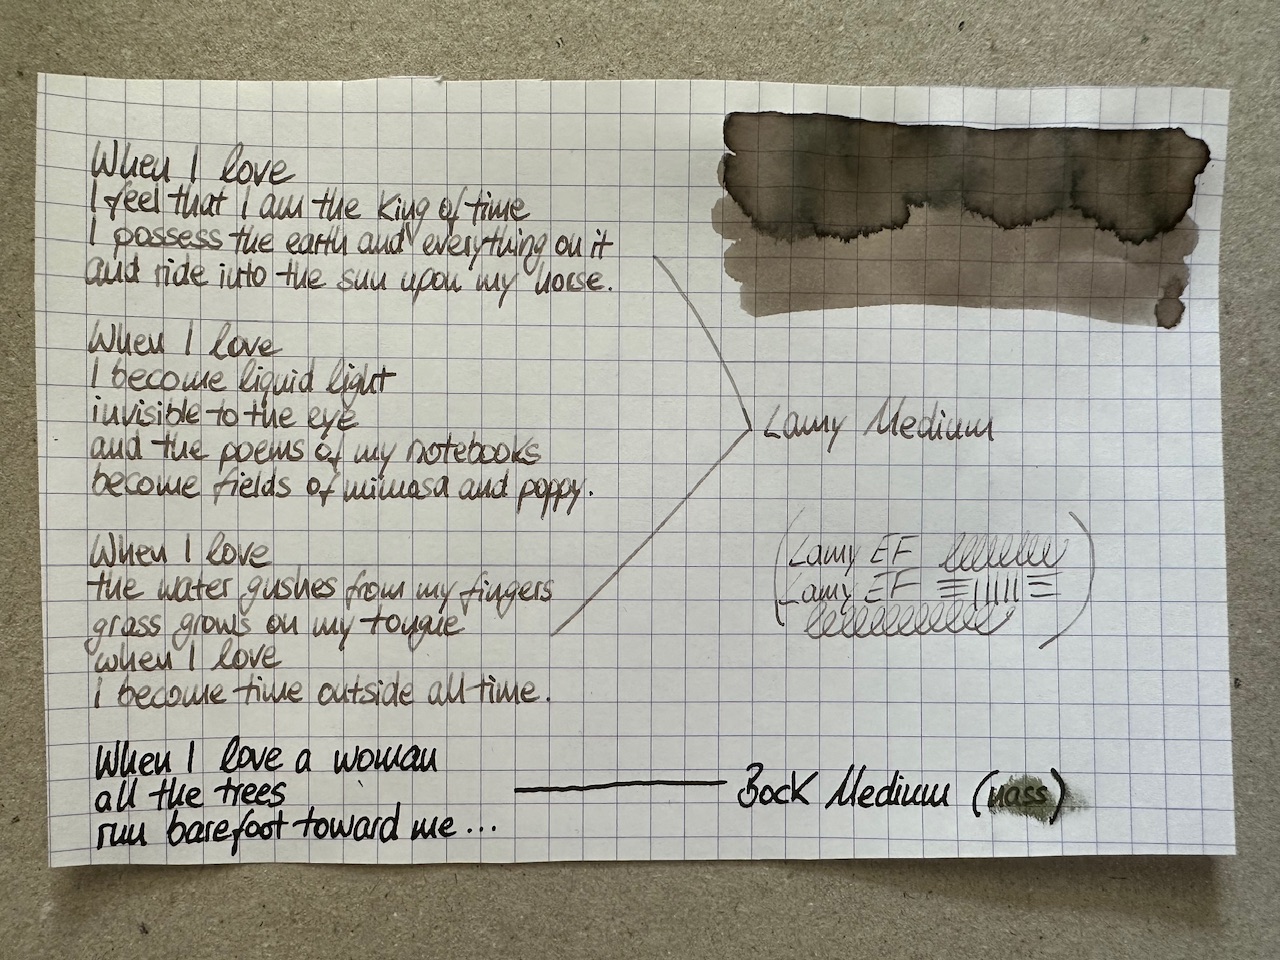 When I love
I feel that I am the King of time
I possess the earth and everything on it
and ride into the sun upon my horse.
When I love
I become liquid light
invisible to the eye
and the poems of my notebooks
become fields of mimosa and poppy.
When I love
the water gushes from my fingers
grass grows on my tongue
when I love
I become time outside all time.
When I love a woman
all the trees
run barefoot toward me...
Lamy Medium
(Lamy EF
Lamy EF)
Bock Medium (nass)